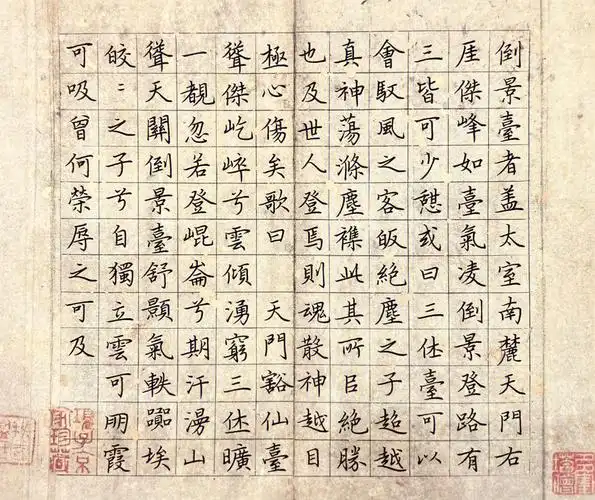 倒景臺者盖太室南麓天門右
厓傑峰如臺氣凌倒景登路有
三皆可少憇或曰三休臺可以
會馭風之客皈絶塵之子超越
真神蕩滌塵襟此其所㠯絶勝
也及世人登焉則魂散神越目
極心傷矣歌曰 天門豁仙臺
聳傑屹崪兮雲傾湧窮三休曠
一覩忽若登崐崙兮期汗漫山
聳天關倒景臺舒顥氣軼嚻埃
皎〻之子兮自獨立雲可朋霞
可吸曾何榮辱之可及
項子京家珍藏